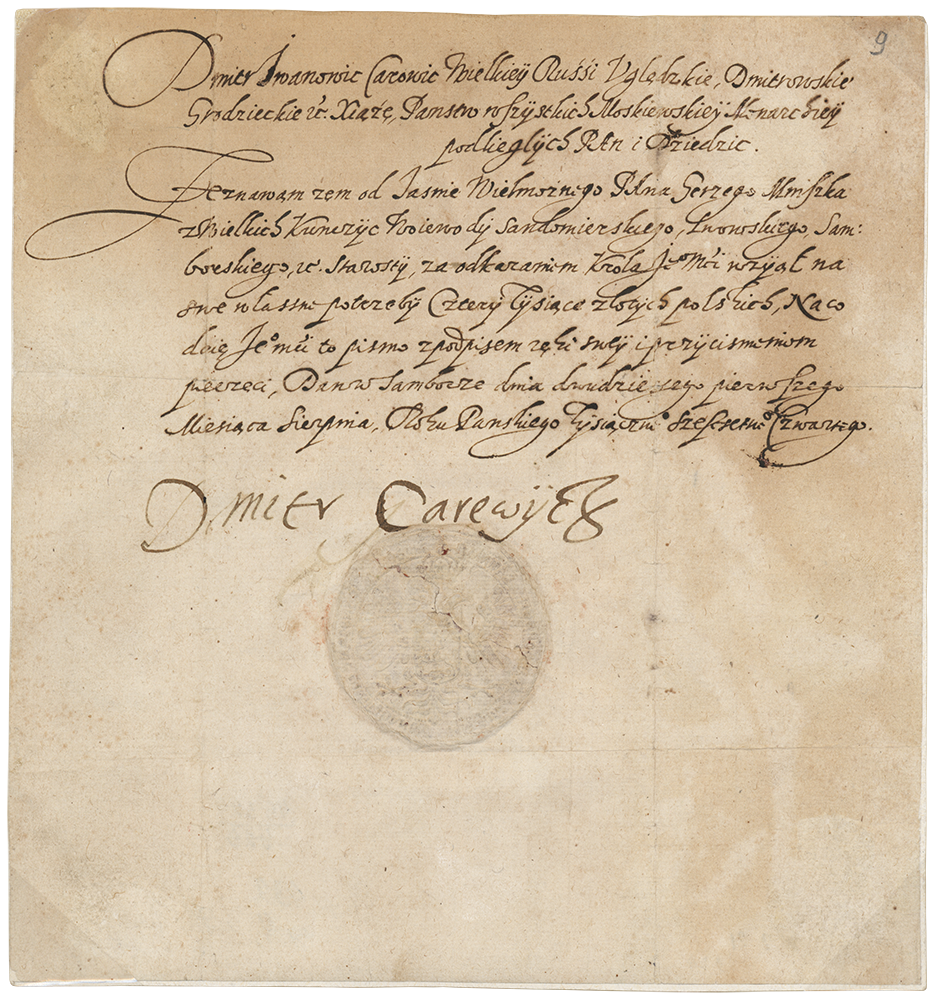 9
Dmitr Iwanowic Carowic Wielkiey Russi Uględzkie, Dmitrowskie
Grodzieckie etc. Xiązę, Panstw wszystkich Moskiewskiey Monarchiey
podlieglych Pan i Dziedzic.
Zeznawam zem od Jasnie Wielmoznego Pana Gerzego Mniszka
z Wielkich Kunczyc Woiewody Sandomierskiego, Lwowskiego, Sam:
borskiego, etc. starosty, za odkazaniem Krola Je᷎o Mci wziął na
swe własne potrzeby Cztery Tysiące złotych polskich, Na co
daię Jeo mci to pismo z podpisem ręki swey i przycisnieniem
pieczęci, Dan w Samborze dnia dwudziestego pierwszego
Miesiąca Sierpnia, Roku Panskiego Tysiącznego szescsetnego Czwartego.
Dmitr Carewycz